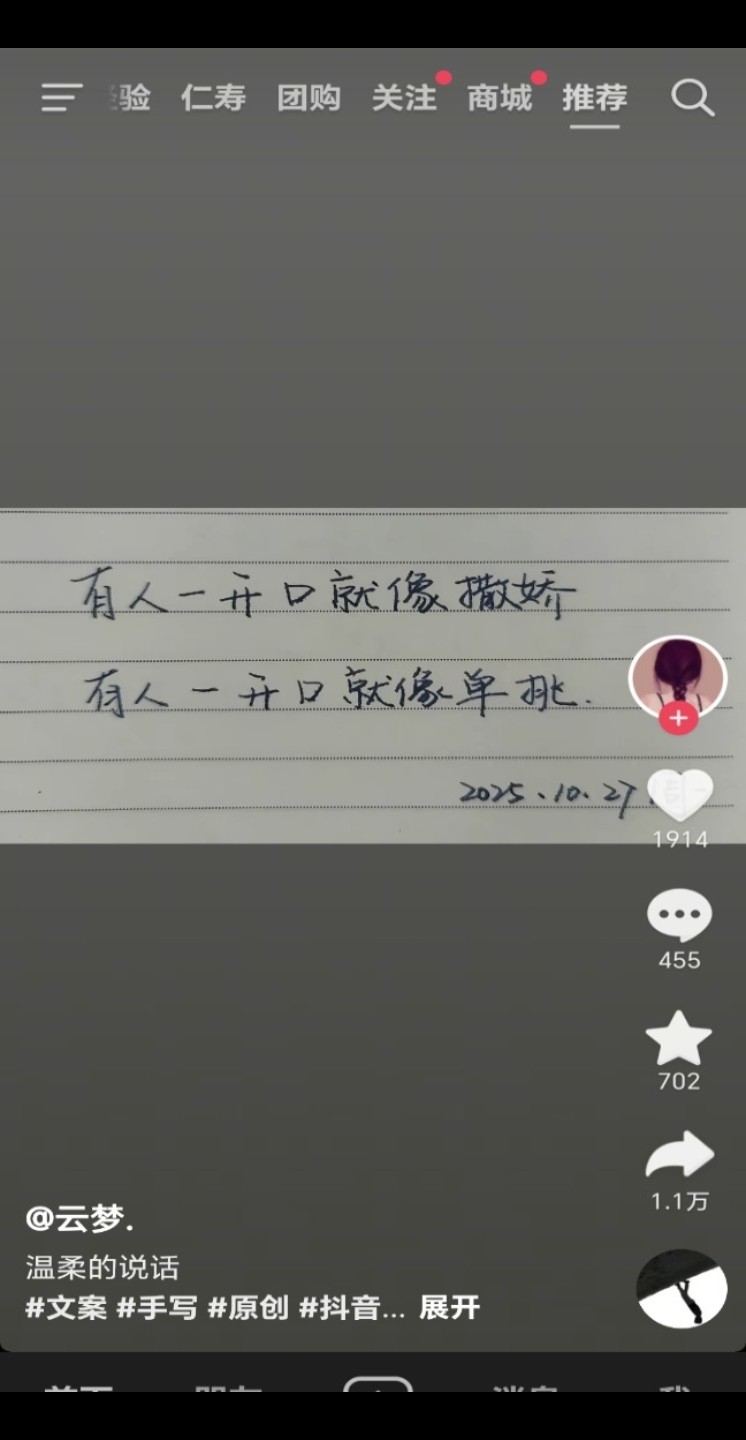 验 仁寿 团购 关注 商城 推荐
有人一开口就像撒娇
有人一开口就像单挑.
2025.10.27
1914
455
702
1.1万
@云梦.
温柔的说话
#文案 #手写 #原创 #抖音... 展开